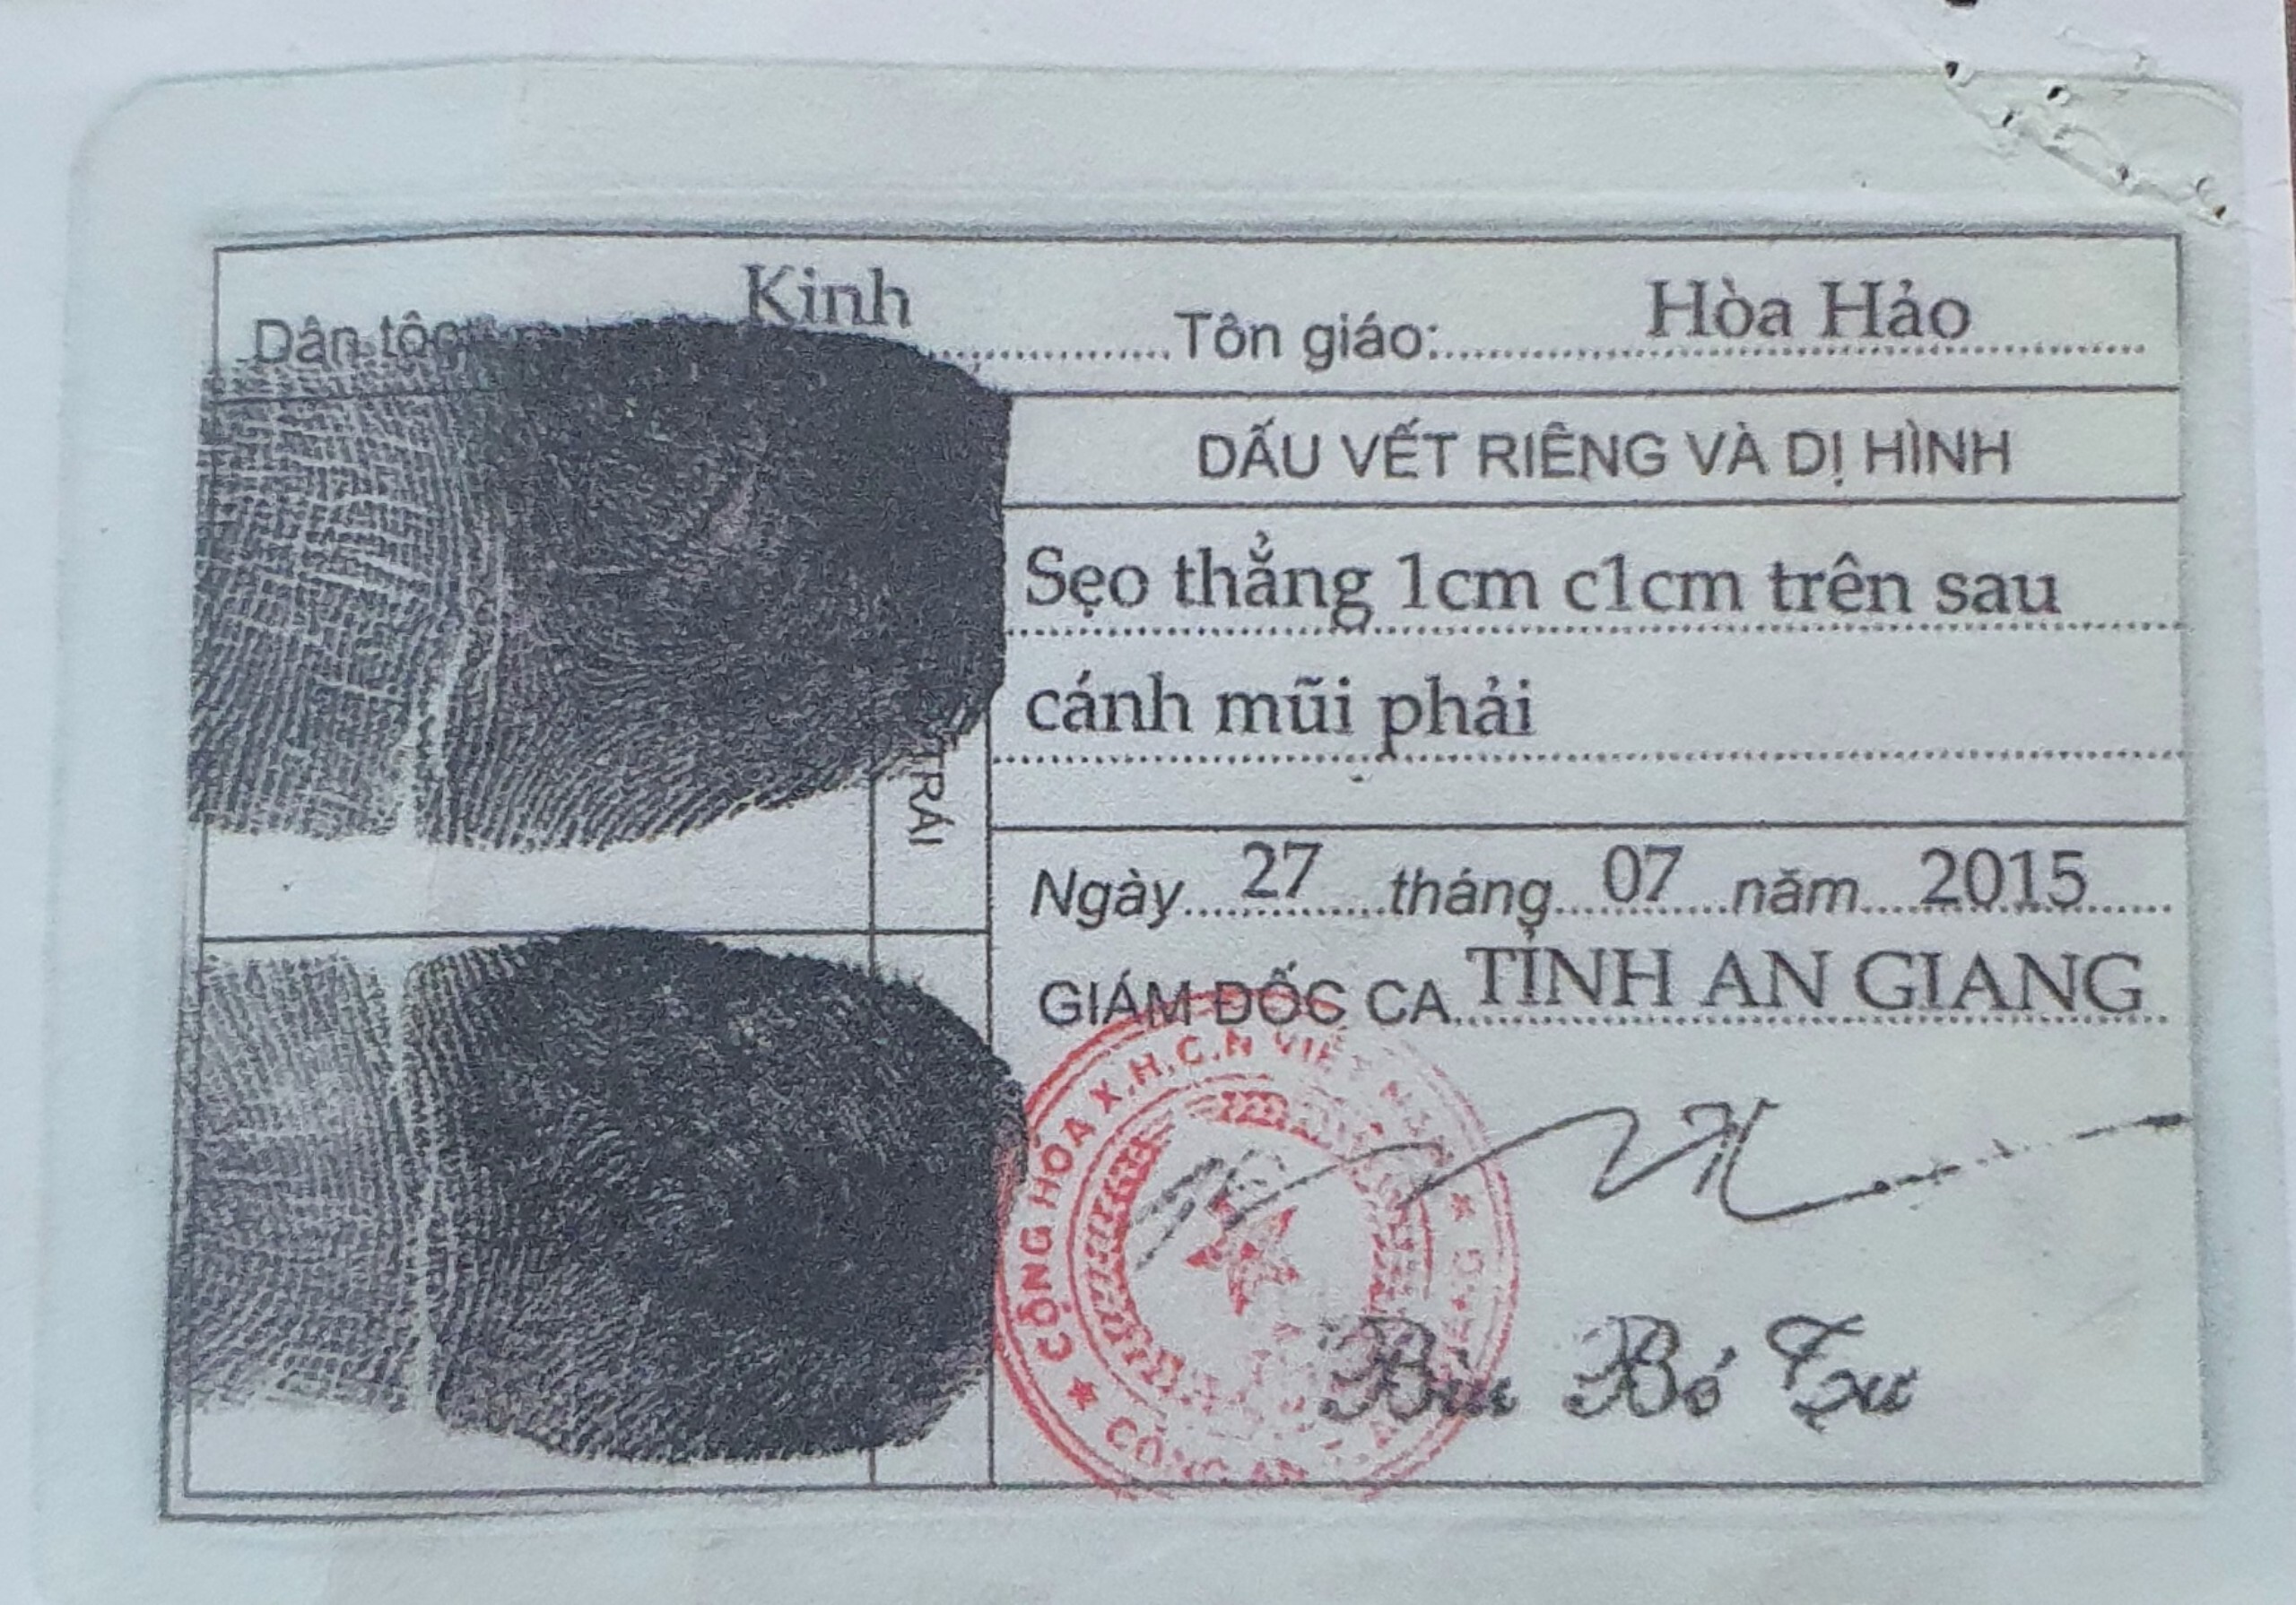 Dân tộc Kinh Tôn giáo: Hòa Hảo
DẤU VẾT RIÊNG VÀ DỊ HÌNH
Sẹo thẳng 1cm c1cm trên sau
cánh mũi phải
TRÁI
Ngày 27 tháng 07 năm 2015
GIÁM ĐỐC CA TỈNH AN GIANG
CỘNG HÒA X.H.C.N VIỆT NAM
CÔNG AN
Bùi Bé Tư